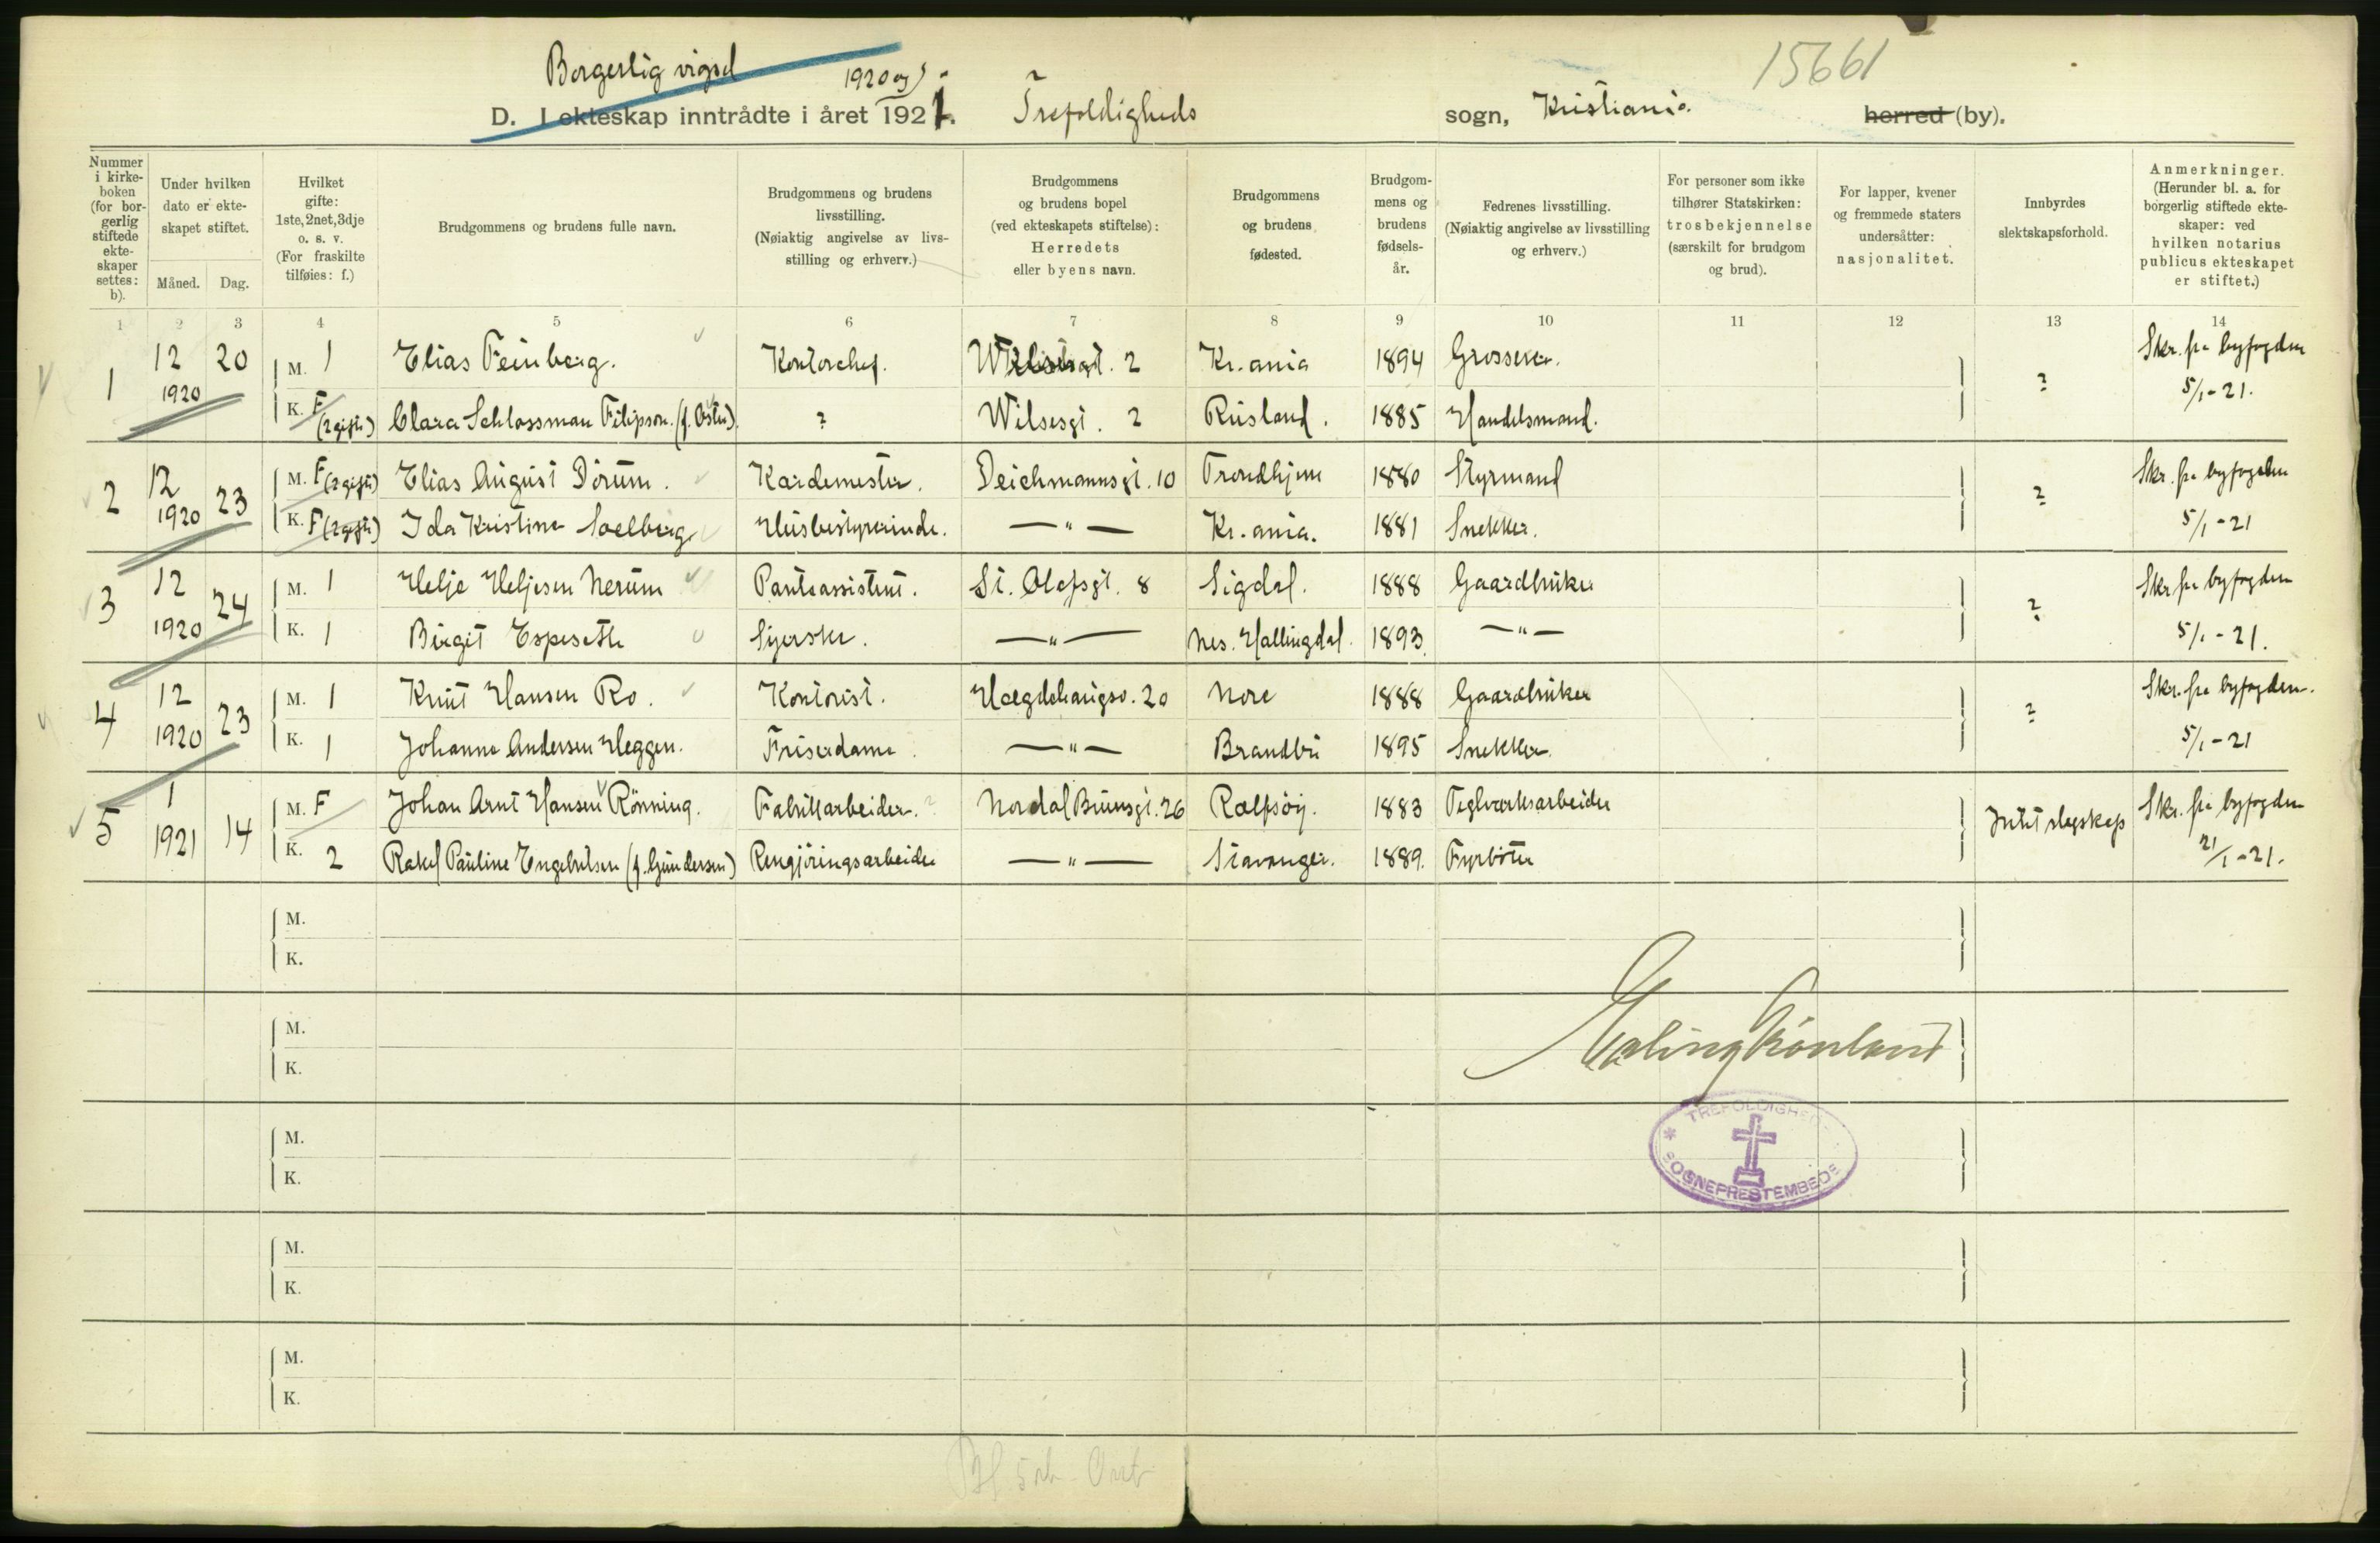 15661
Borgerlig vigsel
1920 og
D. I ekteskap inntrådte i året 1921. Trefoldigheds sogn, Kristiania herred (by).
Nummer i kirkeboken (for borgerlig stiftede ekteskaper settes: b).
Under hvilken dato er ekteskapet stiftet.
Måned. Dag.
Hvilket gifte: 1ste, 2net, 3dje o. s. v. (For fraskilte tilføies: f.)
Brudgommens og brudens fulle navn.
Brudgommens og brudens livsstilling. (Nøiaktig angivelse av livsstilling og erhverv.)
Brudgommens og brudens bopel (ved ekteskapets stiftelse): Herredets eller byens navn.
Brudgommens og brudens fødested.
Brudgommens og brudens fødselsår.
Fedrenes livsstilling. (Nøiaktig angivelse av livsstilling og erhverv.)
For personer som ikke tilhører Statskirken: trosbekjennelse (særskilt for brudgom og brud).
For lapper, kvener og fremmede staters undersåtter: nasjonalitet.
Innbyrdes slektskapsforhold.
Anmerkninger. (Herunder bl. a. for borgerlig stiftede ekteskaper: ved hvilken notarius publicus ekteskapet er stiftet.)
1 2 3 4 5 6 7 8 9 10 11 12 13 14
1 12 1920 20 M. 1 Elias Feinberg. Kontorchef. 2 Kr.ania 1894 Grosserer. ? Skr. fra byfogden
K. F (2 gift) Clara Schlossman Filipson. ? Wilsesgt. 2 Rusland. 1885 Handelsmand. 5/1-21.
2 12 1920 23 M. F (2 gift) Elias August Dörum. Kardemester. Deichmannsgt. 10 Trondhjem 1880 Styrmand ? Skr. fra byfogden
K. F (2 gift) Ida Kristine Soelberg Husbestyrerinde. —"— Kr.ania. 1881 Snekker. 5/1-21
3 12 1920 24 M. 1 Helje Heljesen Nerum Panteassistent. St. Olafsgt. 8 Sigdal. 1888 Gaardbruker ? Skr. fra byfogden
K. 1 Birgit Espeseth Syerske. —"— Nes. Hallingdal. 1893. —"— 5/1-21.
4 12 1920 23 M. 1 Knut Hansen Ro. Kontorist. Hægdehaugsv. 20 Nore 1888 Gaardbruker ? Skr. fra byfogden.
K. 1 Johanne Andersen Heggen. Friserdame. —"— Brandbu 1895 Snekker. 5/1-21
5 1 1921 14 M. F Johan Arnt Hansen Rönning. Fabrikarbeider. ? Nordal Brunsgt. 26 Rolfsöy. 1883 Teglverksarbeider Intet slegskap Skr. fra byfogden
K. 2 Rakel Pauline Engebretsen (f. Gundersen) Rengjöringsarbeider —"— Stavanger. 1889. Fyrböter 21/1-21.
M.
K.
M.
K.
Erling Grönland
M.
K.
TREFOLDIGHEDS
SOGNEPRESTEMBEDE
M.
K.
M.
K.